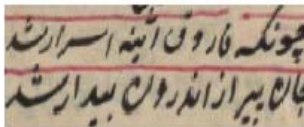 چونکه فاروق آئینه اسرار شد
جان پیر از اندرون بیدار شد